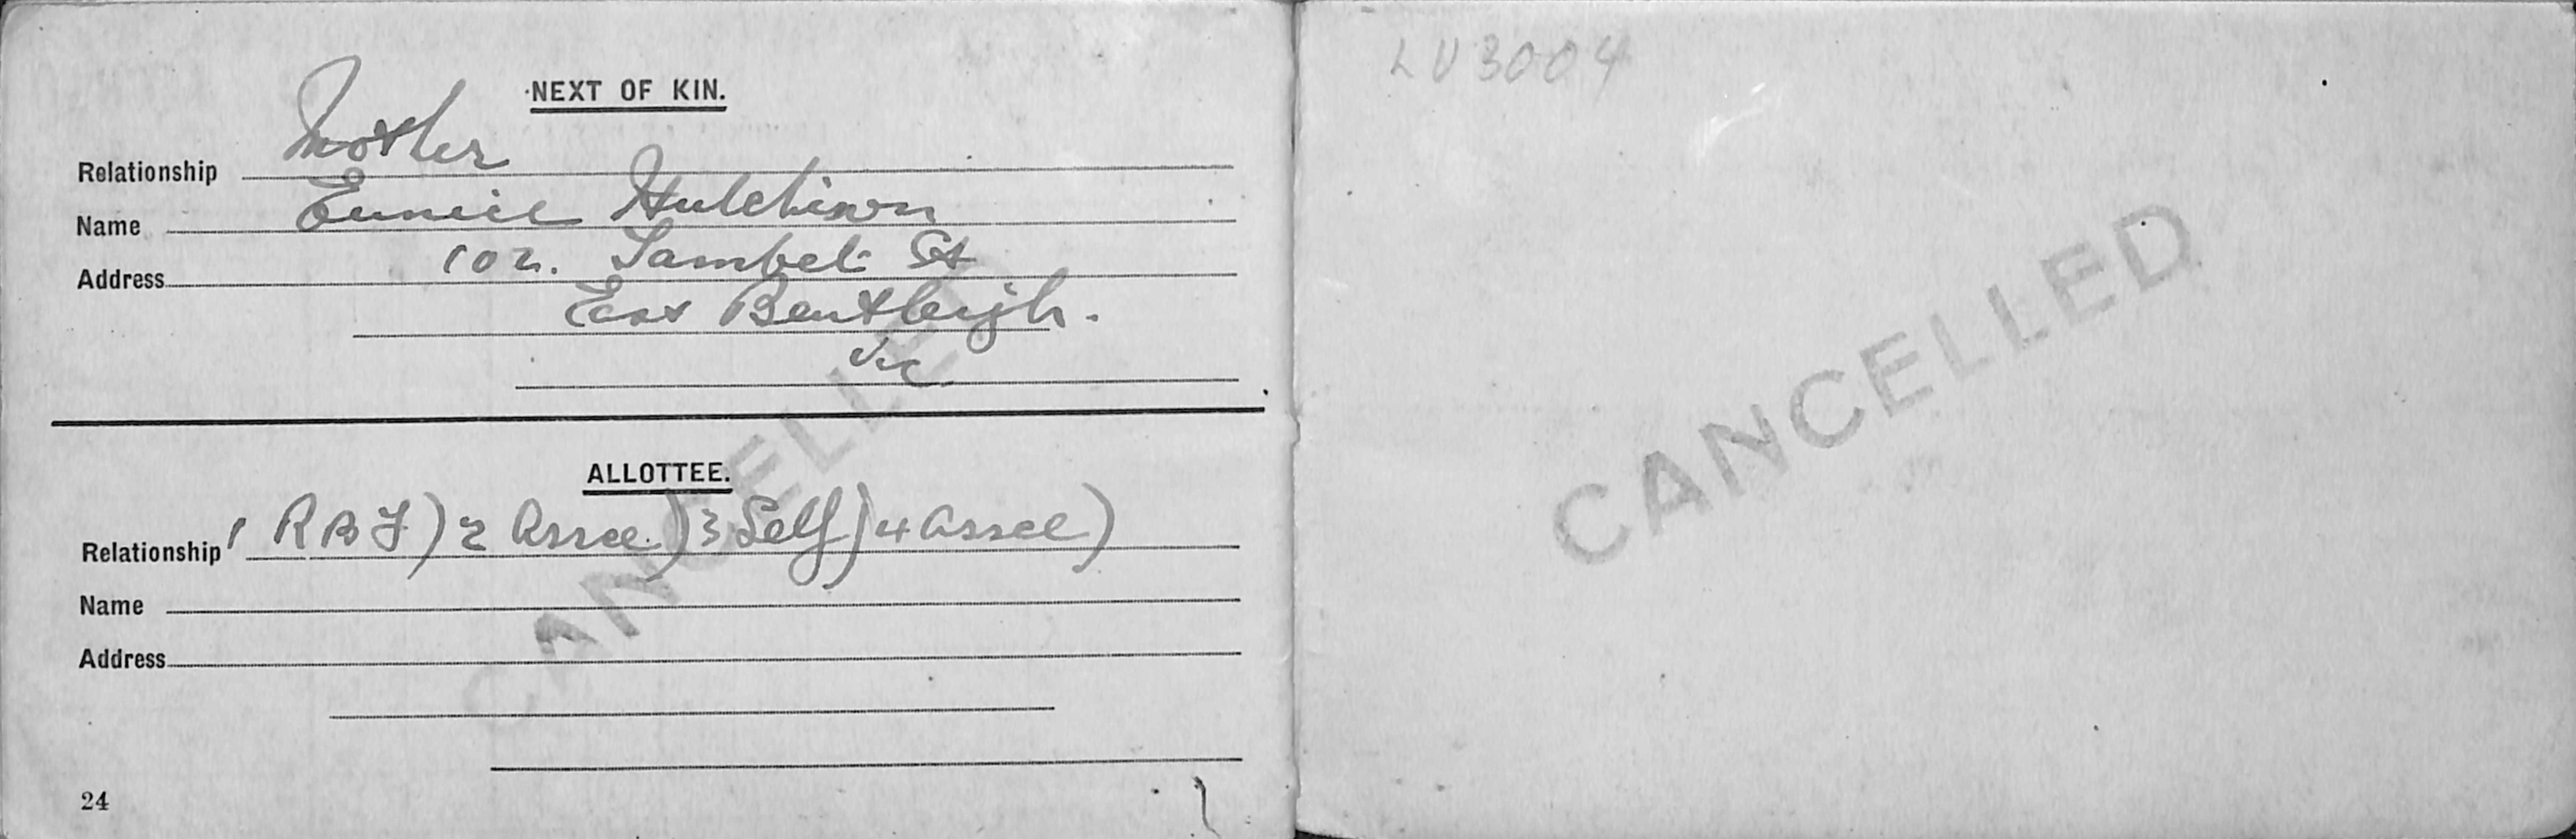 NEXT OF KIN.
Relationship Mother
Name Eunice Hutchison
Address 102. Tambet St
East Bentleigh.
Vic
ALLOTTEE.
Relationship 1 RBF) 2 Assce.) 3 Self) 4 Assce)
Name
Address
24
CANCELLED
LV3004
CANCELLED